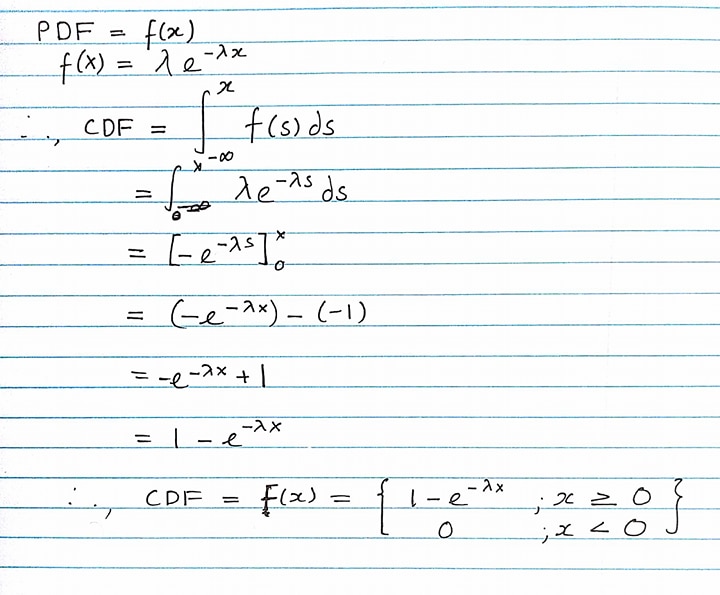 PDF = f(x)
f(x) = λe^{-λx}
∴, CDF = ∫_{-∞}^{x} f(s) ds
= ∫_{0}^{x} λe^{-λs} ds
= [-e^{-λs}]_{0}^{x}
= (-e^{-λx}) - (-1)
= -e^{-λx} + 1
= 1 - e^{-λx}
∴, CDF = F(x) = { 1 - e^{-λx} ; x ≥ 0 }
0 ; x < 0